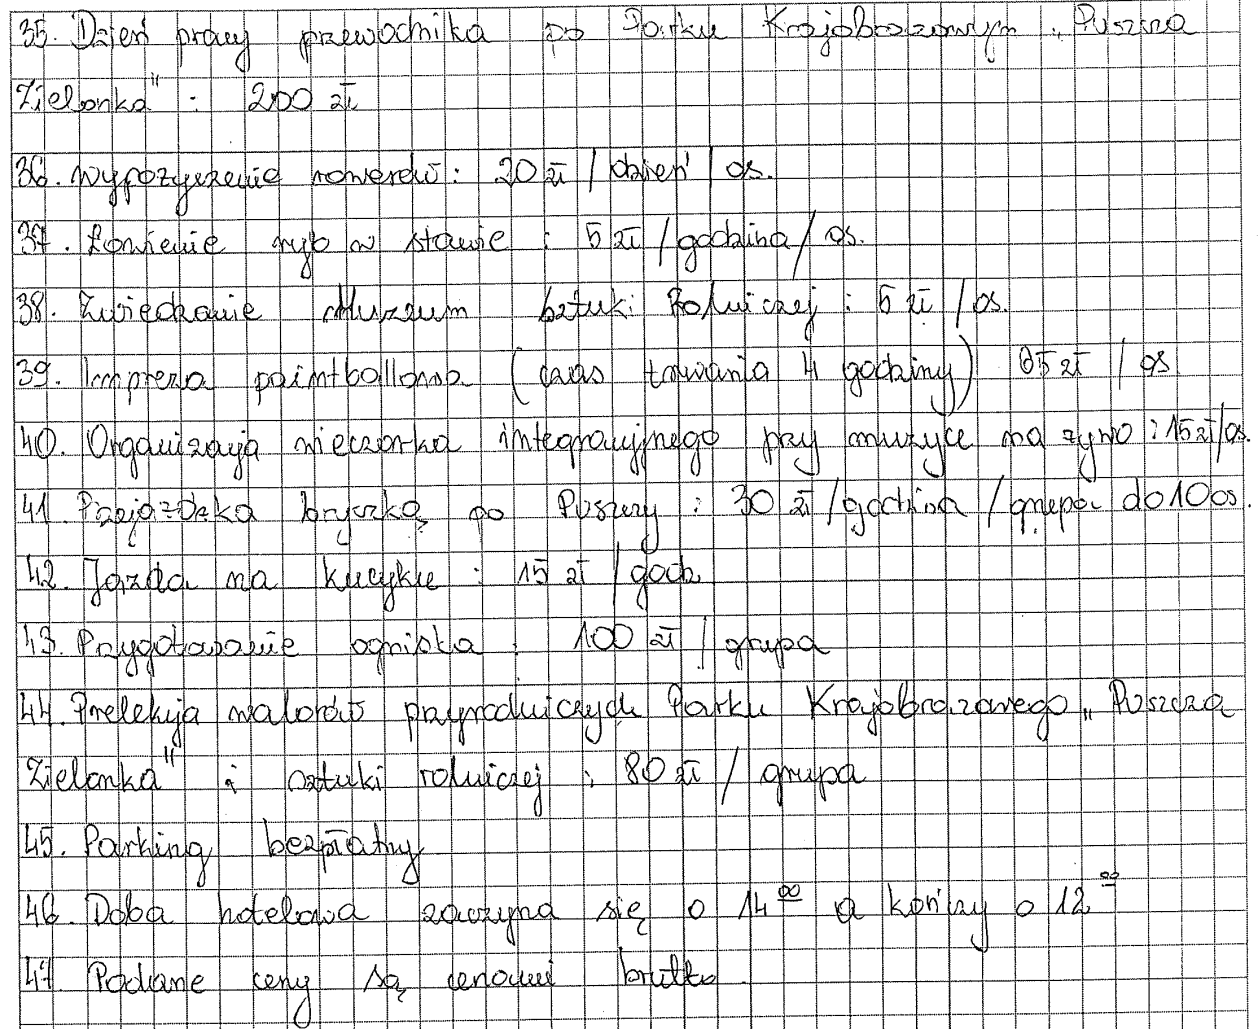 35. Dzień pracy przewodnika po Parku Krajobrazowym „Puszcza
Zielonka" : 200 zł
36. Wypożyczenie rowerów: 20 zł / dzień / os.
37. Łowienie ryb w stawie : 5 zł / godzina / os.
38. Zwiedzanie Muzeum Sztuki Rolniczej : 5 zł / os.
39. Impreza paintballowa (czas trwania 4 godziny) 85 zł / os
40. Organizacja wieczorka integracyjnego przy muzyce na żywo : 15 zł/os.
41. Przejażdżka bryczką po Puszczy : 30 zł / godzina / grupa do 10 os.
42. Jazda na kucyku : 15 zł / godz.
43. Przygotowanie ogniska : 100 zł / grupa
44. Prelekcja walorów przyrodniczych Parku Krajobrazowego „Puszcza
Zielonka" i sztuki rolniczej : 80 zł / grupa
45. Parking bezpłatny
46. Doba hotelowa zaczyna się o 14 00 a kończy o 12 00
47. Podane ceny są cenami brutto.